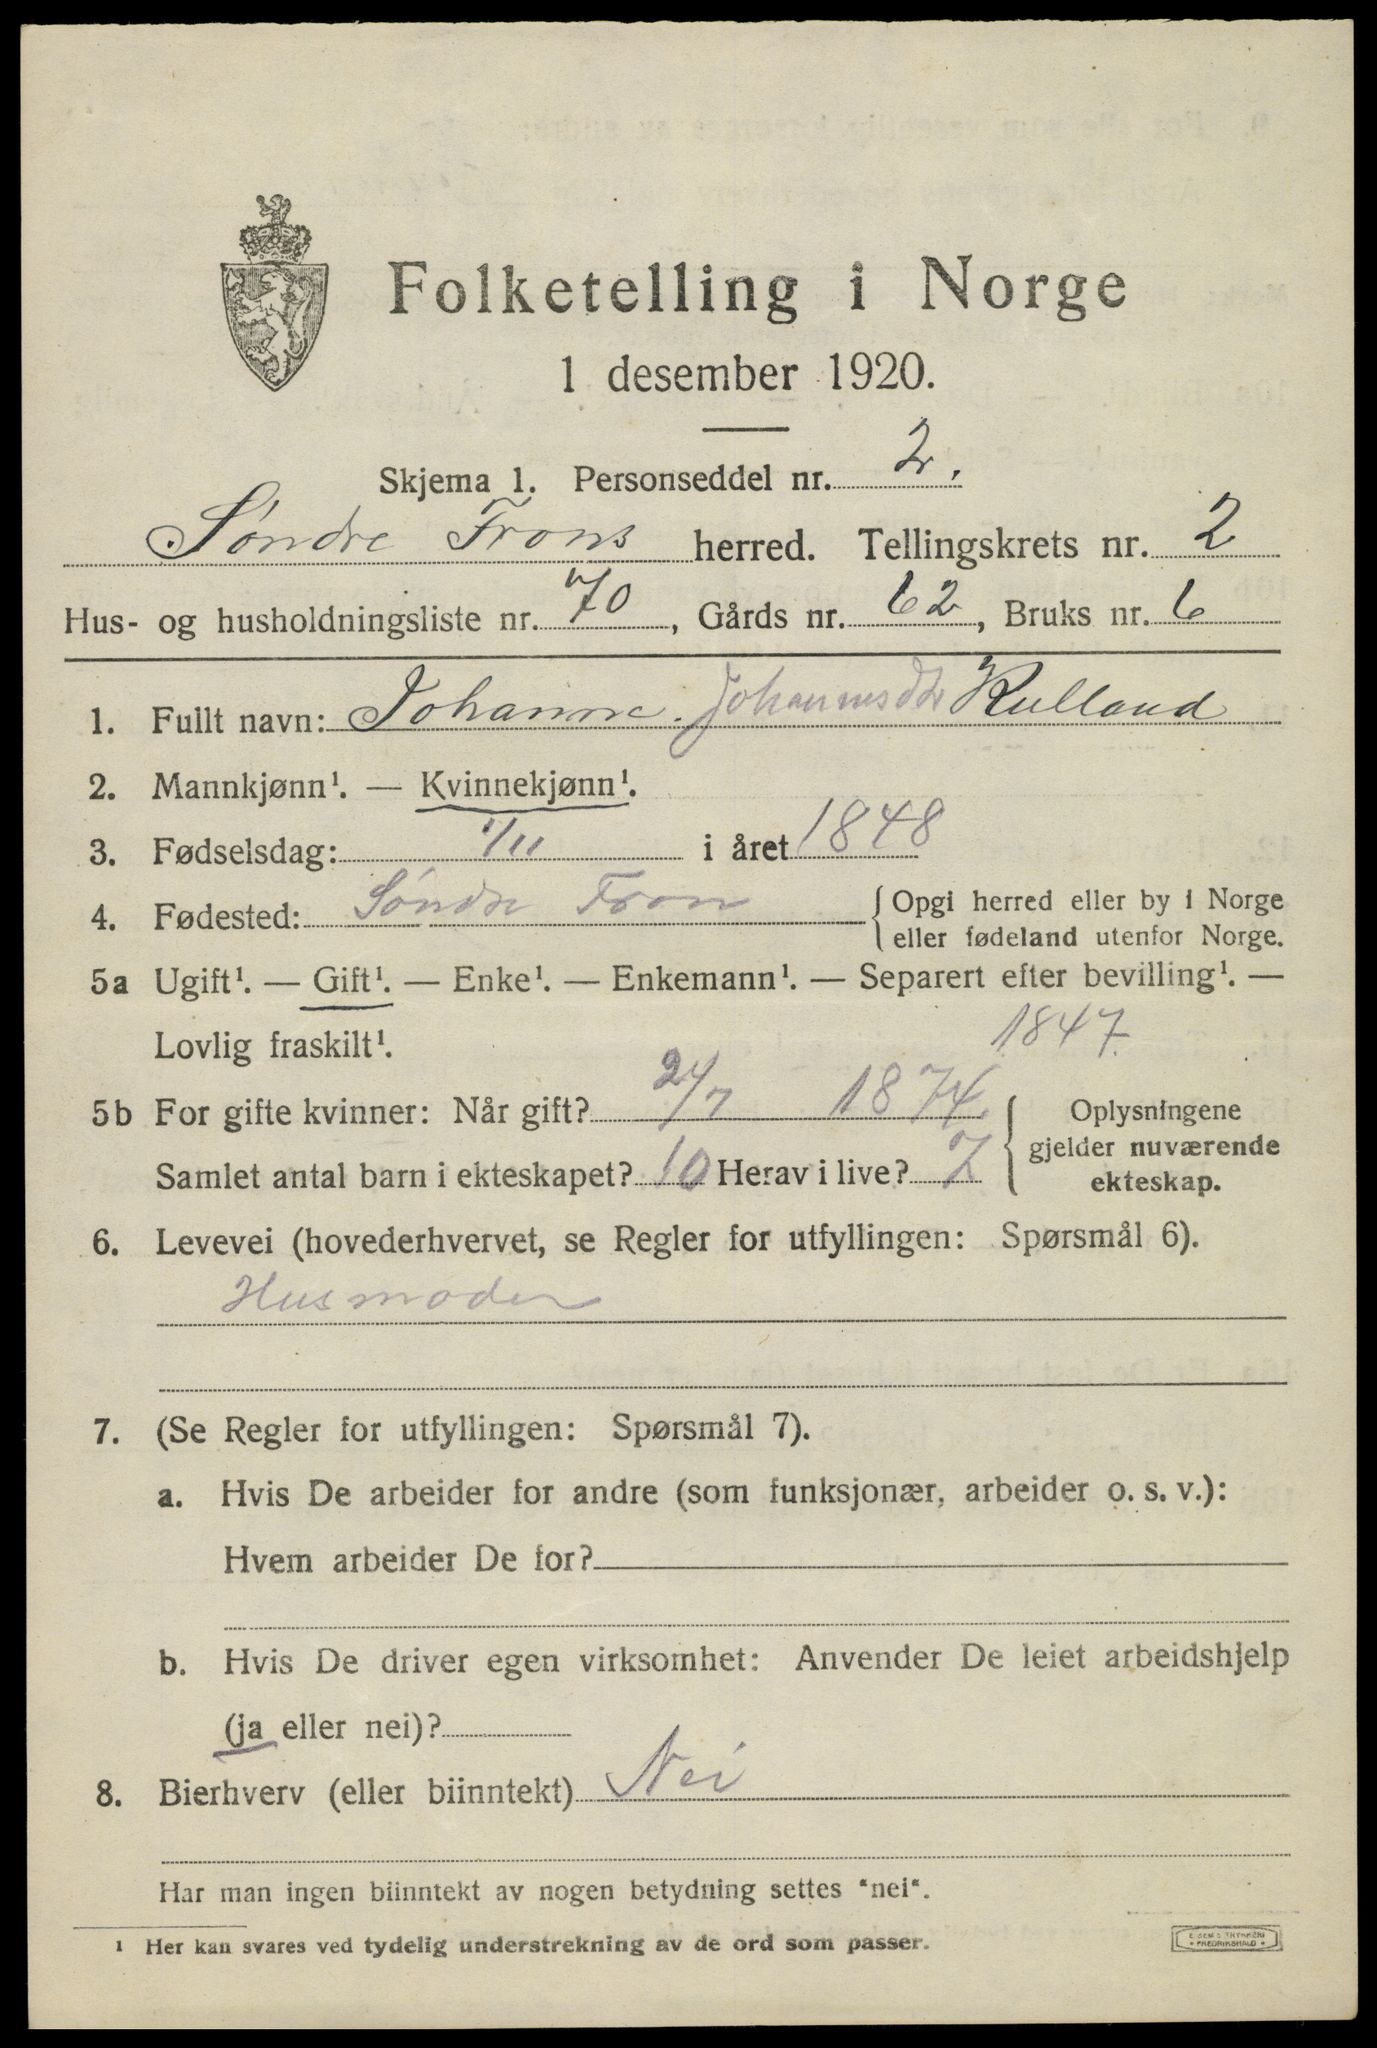 Folketelling i Norge
1 desember 1920.
Skjema 1. Personseddel nr. 2.
Søndre Frons herred. Tellingskrets nr. 2
Hus- og husholdningsliste nr. 70, Gårds nr. 62, Bruks nr. 6
1. Fullt navn: Johanne Johannesdtr Rulland
2. Mannkjønn¹. — Kvinnekjønn¹.
3. Fødselsdag: 1/11 i året 1848
4. Fødested: Søndre Fron {Opgi herred eller by i Norge
eller fødeland utenfor Norge.
5a Ugift¹. — Gift¹. — Enke¹. — Enkemann¹. — Separert efter bevilling¹. —
Lovlig fraskilt¹.
1847.
5b For gifte kvinner: Når gift? 24/7 1874. {Oplysningene
gjelder nuværende
Samlet antal barn i ekteskapet? 10 Herav i live? 7
ekteskap.
6. Levevei (hovederhvervet, se Regler for utfyllingen: Spørsmål 6).
Husmoder
7. (Se Regler for utfyllingen: Spørsmål 7).
a. Hvis De arbeider for andre (som funksjonær, arbeider o. s. v.):
Hvem arbeider De for?
b. Hvis De driver egen virksomhet: Anvender De leiet arbeidshjelp
(ja eller nei)?
8. Bierhverv (eller biinntekt) Nei
Har man ingen biinntekt av nogen betydning settes "nei".
¹ Her kan svares ved tydelig understrekning av de ord som passer.
FREDRIKSHALD